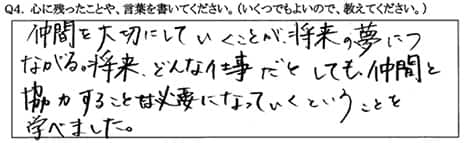 Q4. 心に残ったことや、言葉を書いてください。(いくつでもよいので、教えてください。)
仲間を大切にしていくことが、将来の夢につ
ながる。将来、どんな仕事だとしても、仲間と
協力することは必要になっていくということを
学べました。